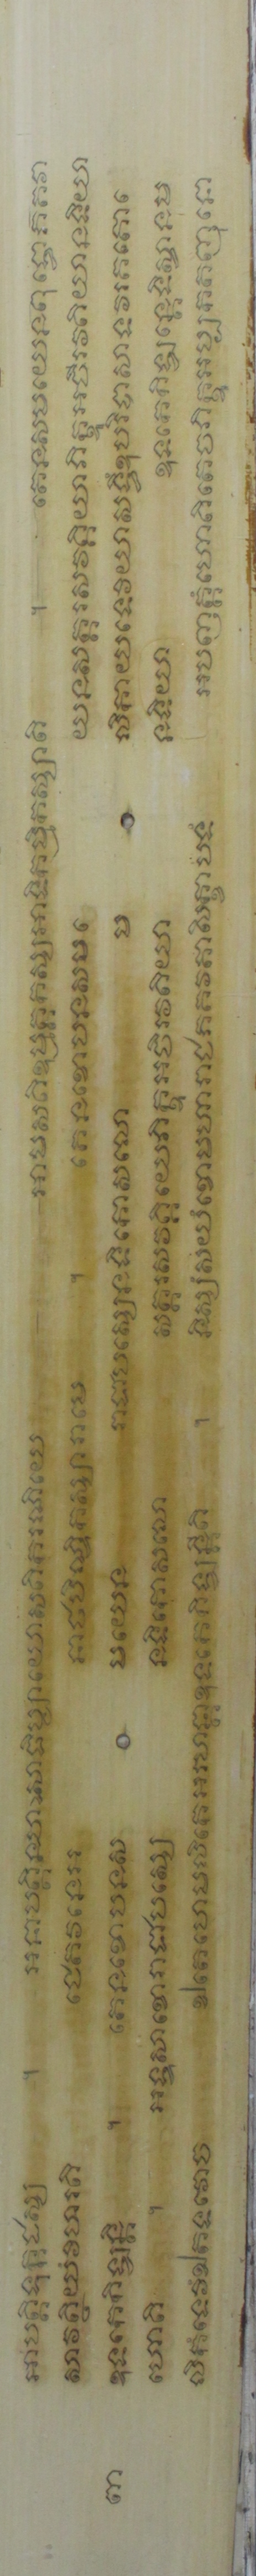 អាបត្តិទុក្កដស្ស ។ អនាបត្តិនហាសាធិប្បាយោសតិករណិយេ អាបសតិឧម្មត្តកស្សអាទិកម្មិកស្សាតិ ។ តេនសមយេនពុទ្ធោភគវា
សាវត្ថិយំវិហរតិ ជេតវនេអ នាថបិណ្ឌិកស្សារាមេ ។ តេនខោបនសមេ យនសត្តរសវគ្គិយាភិក្ខូអចិរវតិយានទិយា
៣ ឧទកេកិឡន្តិ ។ តេនខោបនស មយេន រាជាបស្សេនទិកោសលោ ម លិកាយទេវិយាសទ្ធឹឧបរិបាសាទវរគតោេ
ហោតិ ។ អទ្ទសាខោរាជាបស្សេ នទិកោសលោ សត្តរសវគ្គិយេភិក្ខូអចិរវតិយា នទិយា ឧទកេកិឡន្តេទិស្វានម
លិកំទេវិំឯតទវោច ឯតេតេមលិកេអរហន្តោឧទកេកិឡន្តីតិ ។ និស្សំសយំខោមហារាជភគវតាសិក្ខាបទំ អបញ្ញត្តំហោតិតេចភិក្ខូអប្បកតញ្ញុនោ